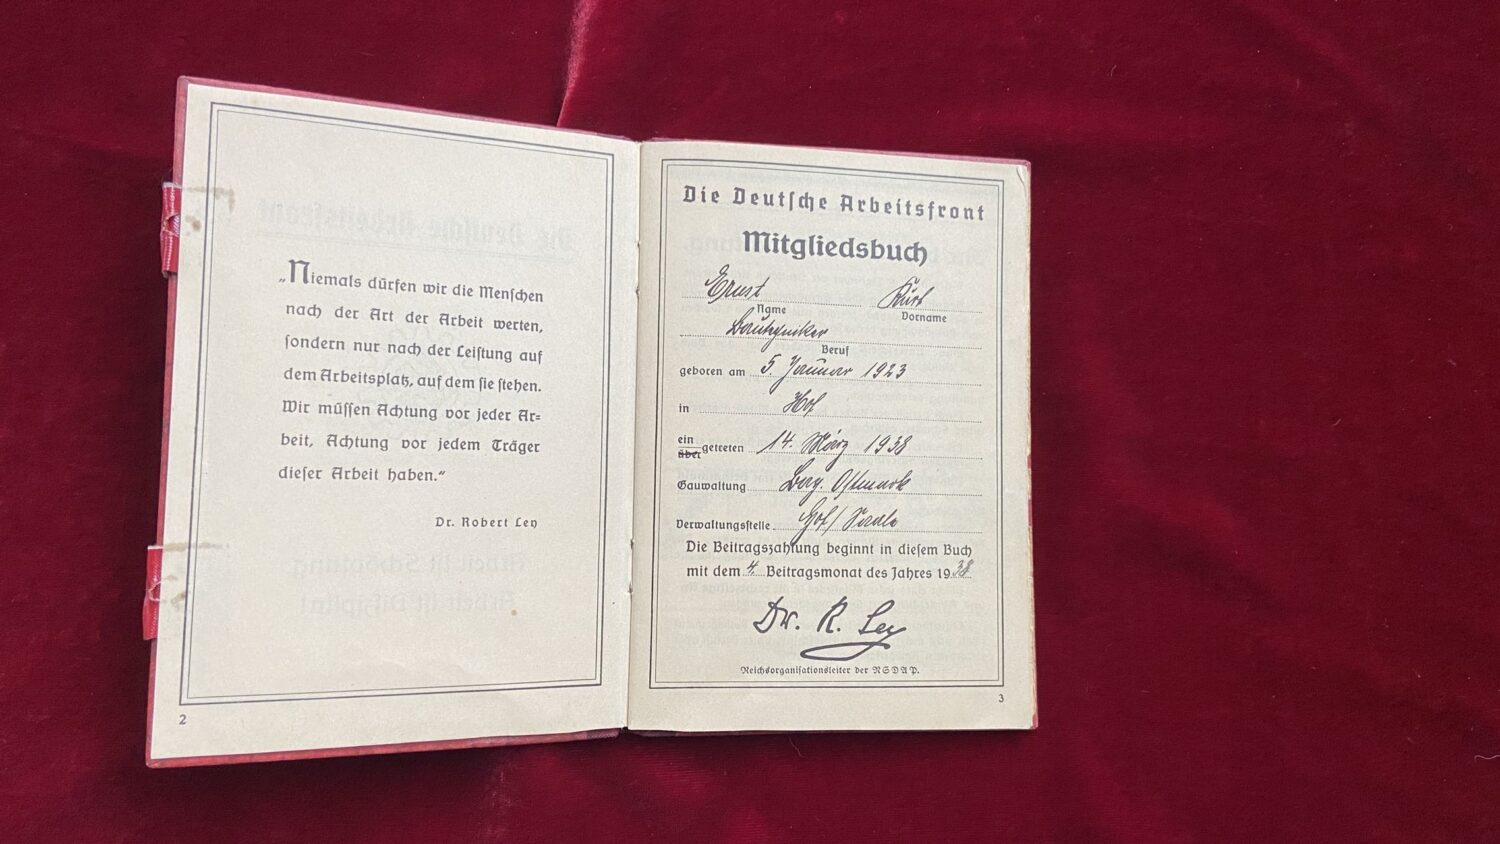 „Niemals dürfen wir die Menschen
nach der Art der Arbeit werten,
sondern nur nach der Leistung auf
dem Arbeitsplatz, auf dem sie stehen.
Wir müssen Achtung vor jeder Ar=
beit, Achtung vor jedem Träger
dieser Arbeit haben.“
Dr. Robert Ley
2
Die Deutsche Arbeitsfront
Mitgliedsbuch
Ernst Kurt
Name Vorname
Beruf
geboren am 5. Januar 1923
in Hof
ein
über getreten 14. März 1938
Gauwaltung Bay. Ostmark
Verwaltungsstelle Hof/Saale
Die Beitragszahlung beginnt in diesem Buch
mit dem 4. Beitragsmonat des Jahres 1938
Dr. R. Ley
Reichsorganisationsleiter der NSDAP.
3